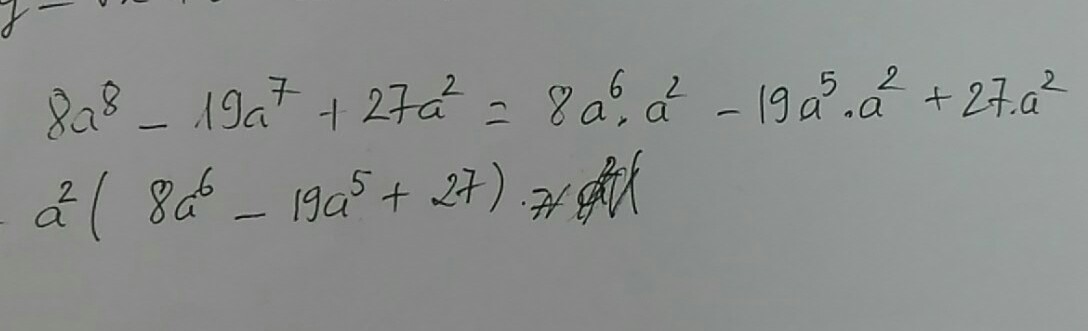 8a⁸ – 19a⁷ + 27a² = 8a⁶. a² - 19a⁵.a² + 27.a²
a² ( 8a⁶ – 19a⁵ + 27).